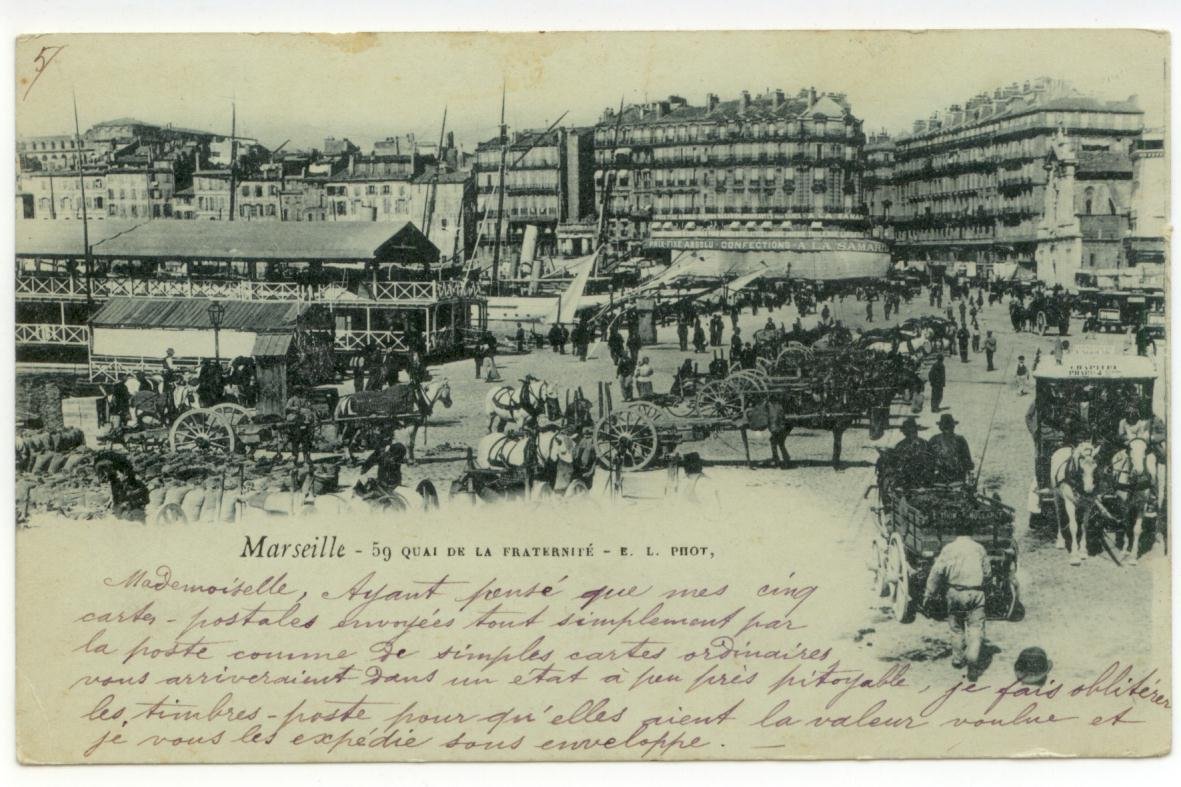 5/
PRIX-FIXE ABSOLU - CONFECTIONS - A LA SAMAR
CHAPITRE
PHARO
Marseille - 59 QUAI DE LA FRATERNITÉ - E. L. PHOT,
Mademoiselle, Ayant pensé que mes cinq
cartes-postales envoyées tout simplement par
la poste comme de simples cartes ordinaires,
vous arriveraient dans un état à peu près pitoyable, je fais oblitérer
les timbres-poste pour qu'elles aient la valeur voulue et
je vous les expédie sous enveloppe. —